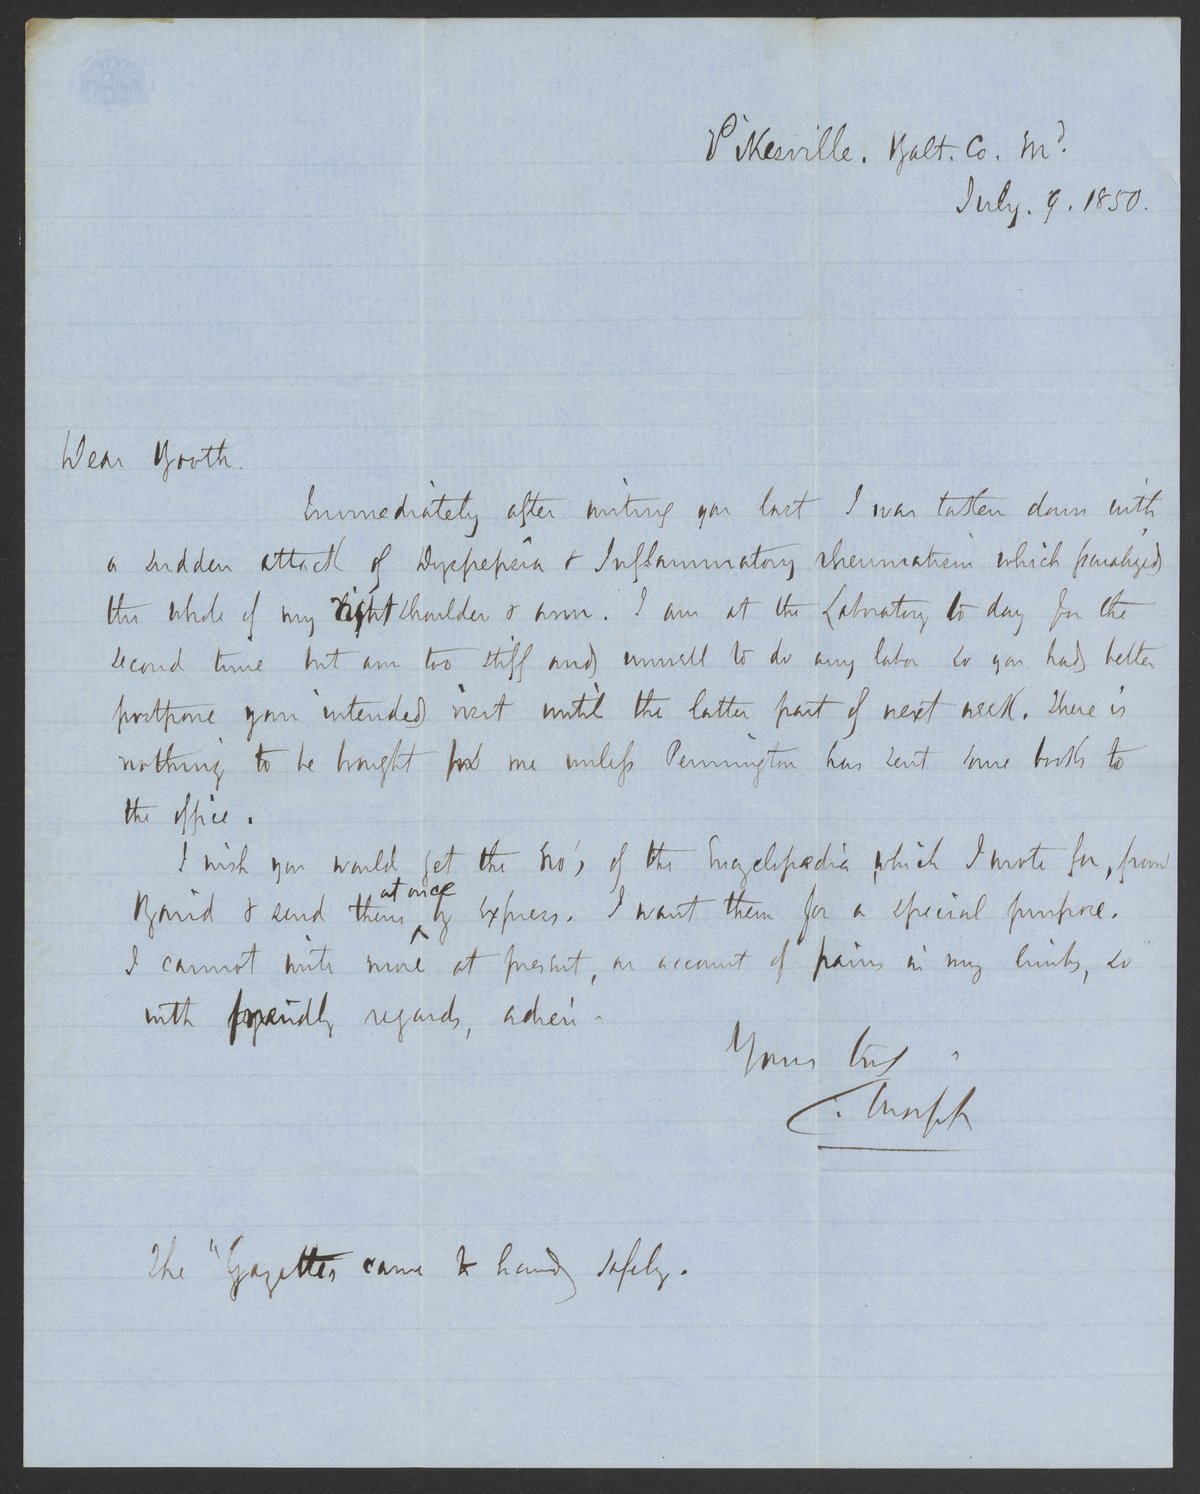 Pikesville. Balt. Co. Md.
July. 9. 1850.
Dear Booth.
Immediately after writing you last I was taken down with
a sudden attack of Dyspepsia & Inflammatory rheumatism which paralyzed
the whole of my right shoulder & arm. I am at the Laboratory to day for the
second time but am too stiff and unwell to do any labor so you had better
postpone your intended visit until the latter part of next week. There is
nothing to be bought for me unless Pennington has sent some books to
the office.
I wish you would get the No's of the Encyclopædia which I wrote for, from
Baird & send them at once by express. I want them for a special purpose.
I cannot write more at present, on account of pains in my limbs, so
with friendly regards, adieu.
Yours truly
C. Morfit
The "Gazettes came to hand safely.